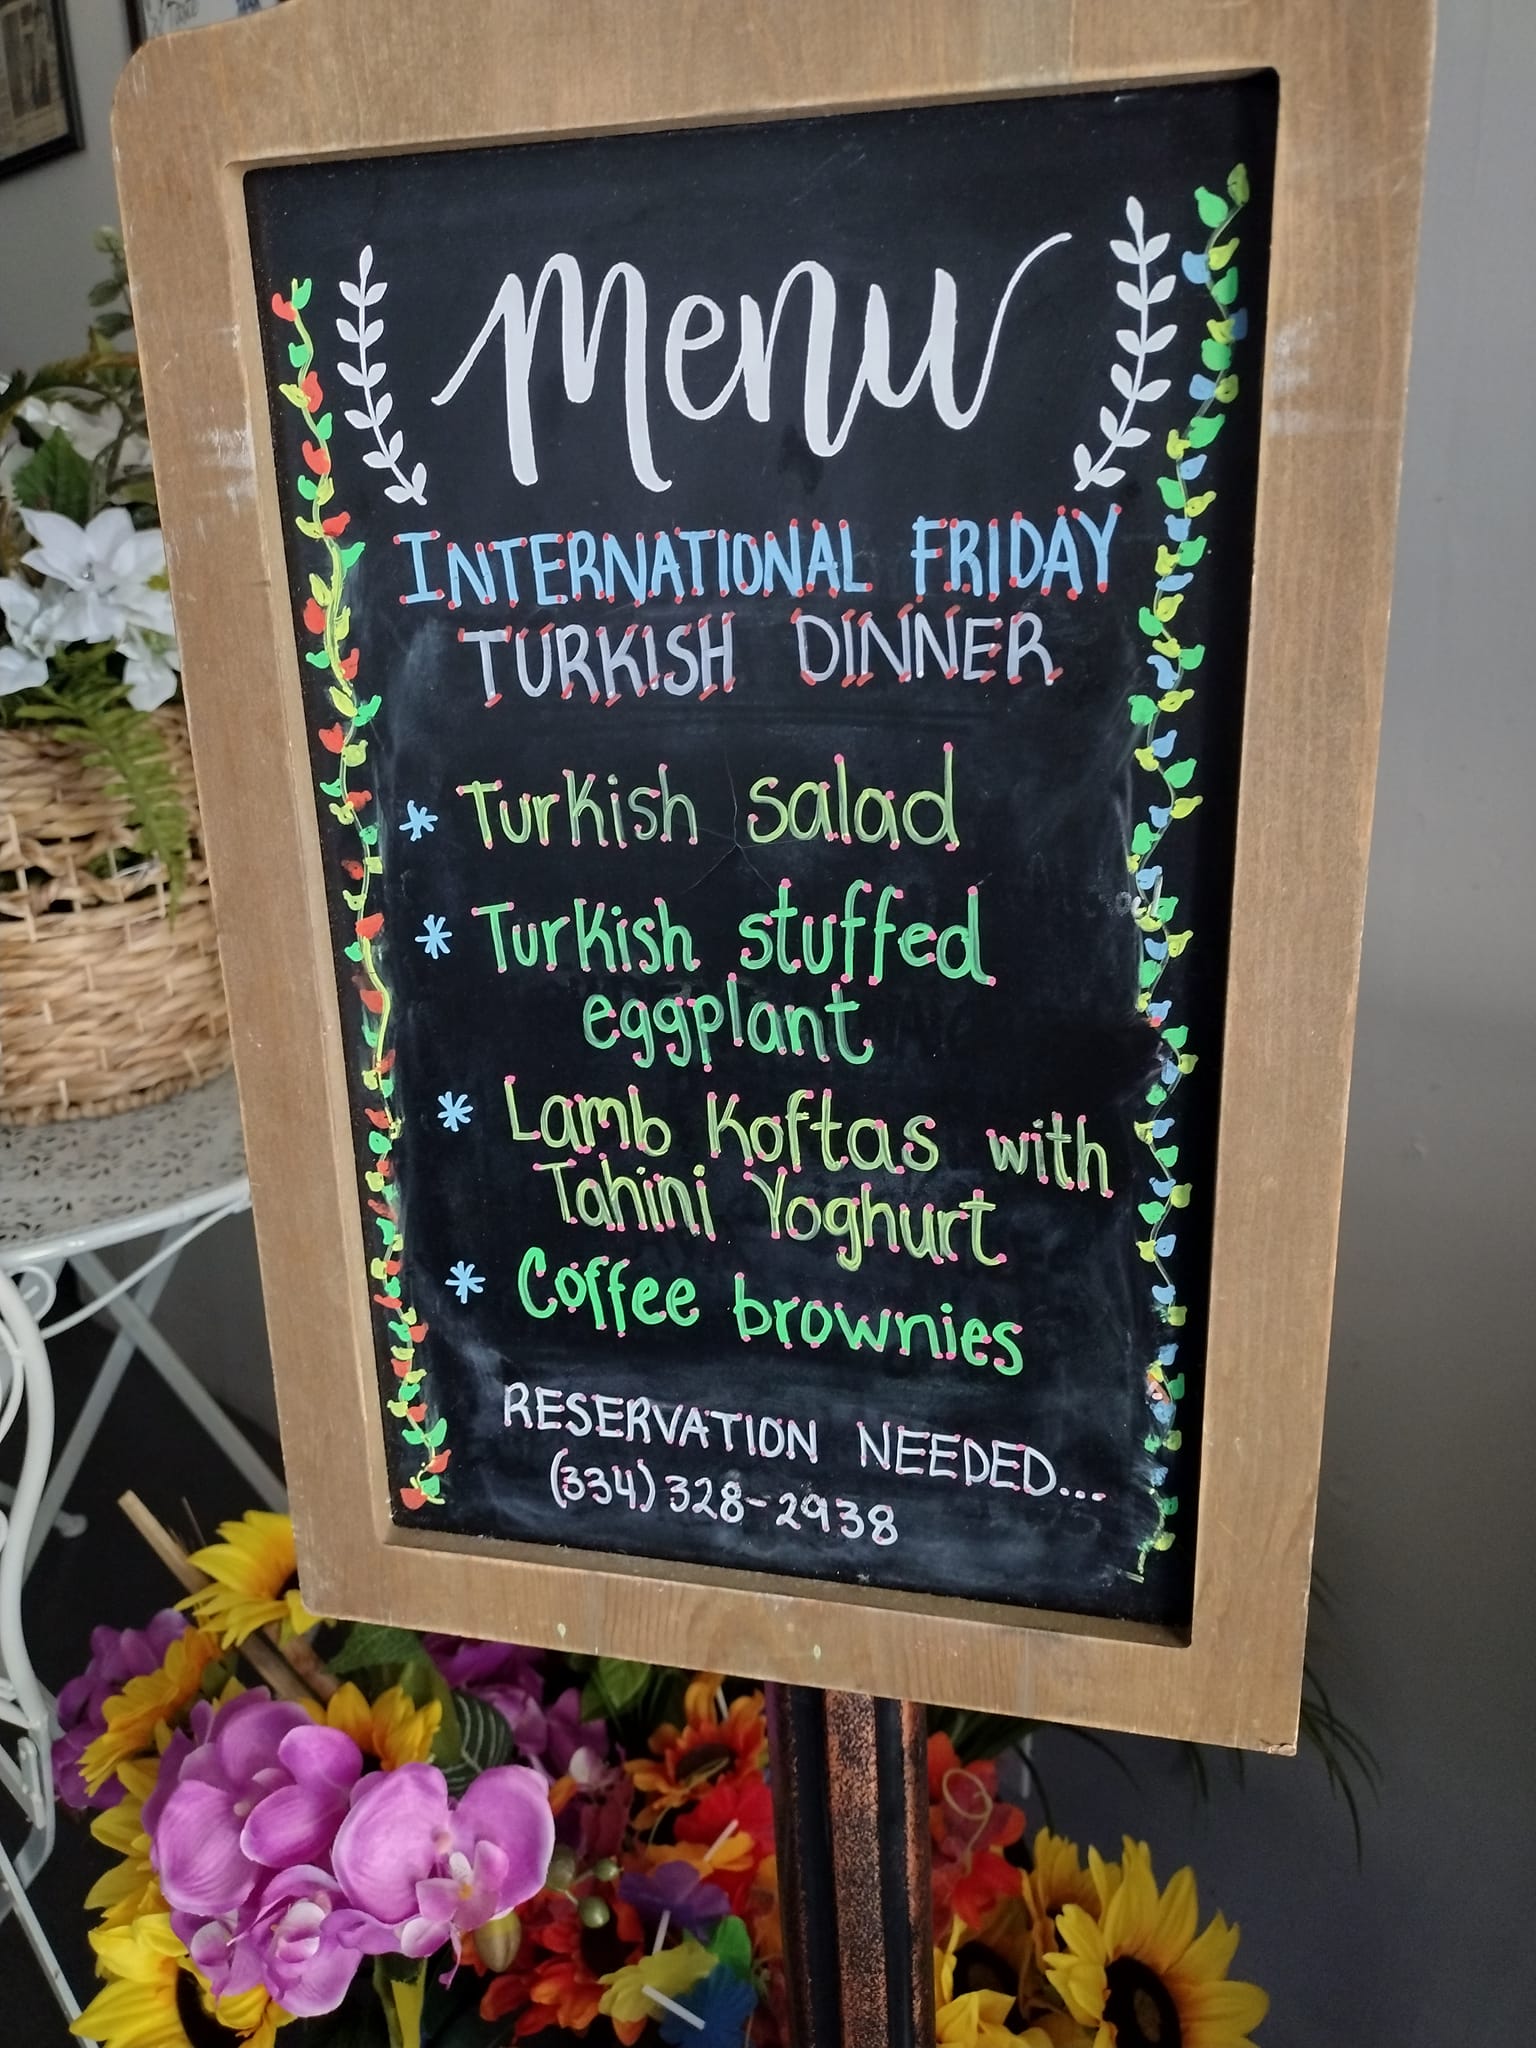 Menu
INTERNATIONAL FRIDAY
TURKISH DINNER
* Turkish salad
* Turkish stuffed
eggplant
* Lamb Koftas with
Tahini Yoghurt
* Coffee brownies
RESERVATION NEEDED...
(334) 328-2938